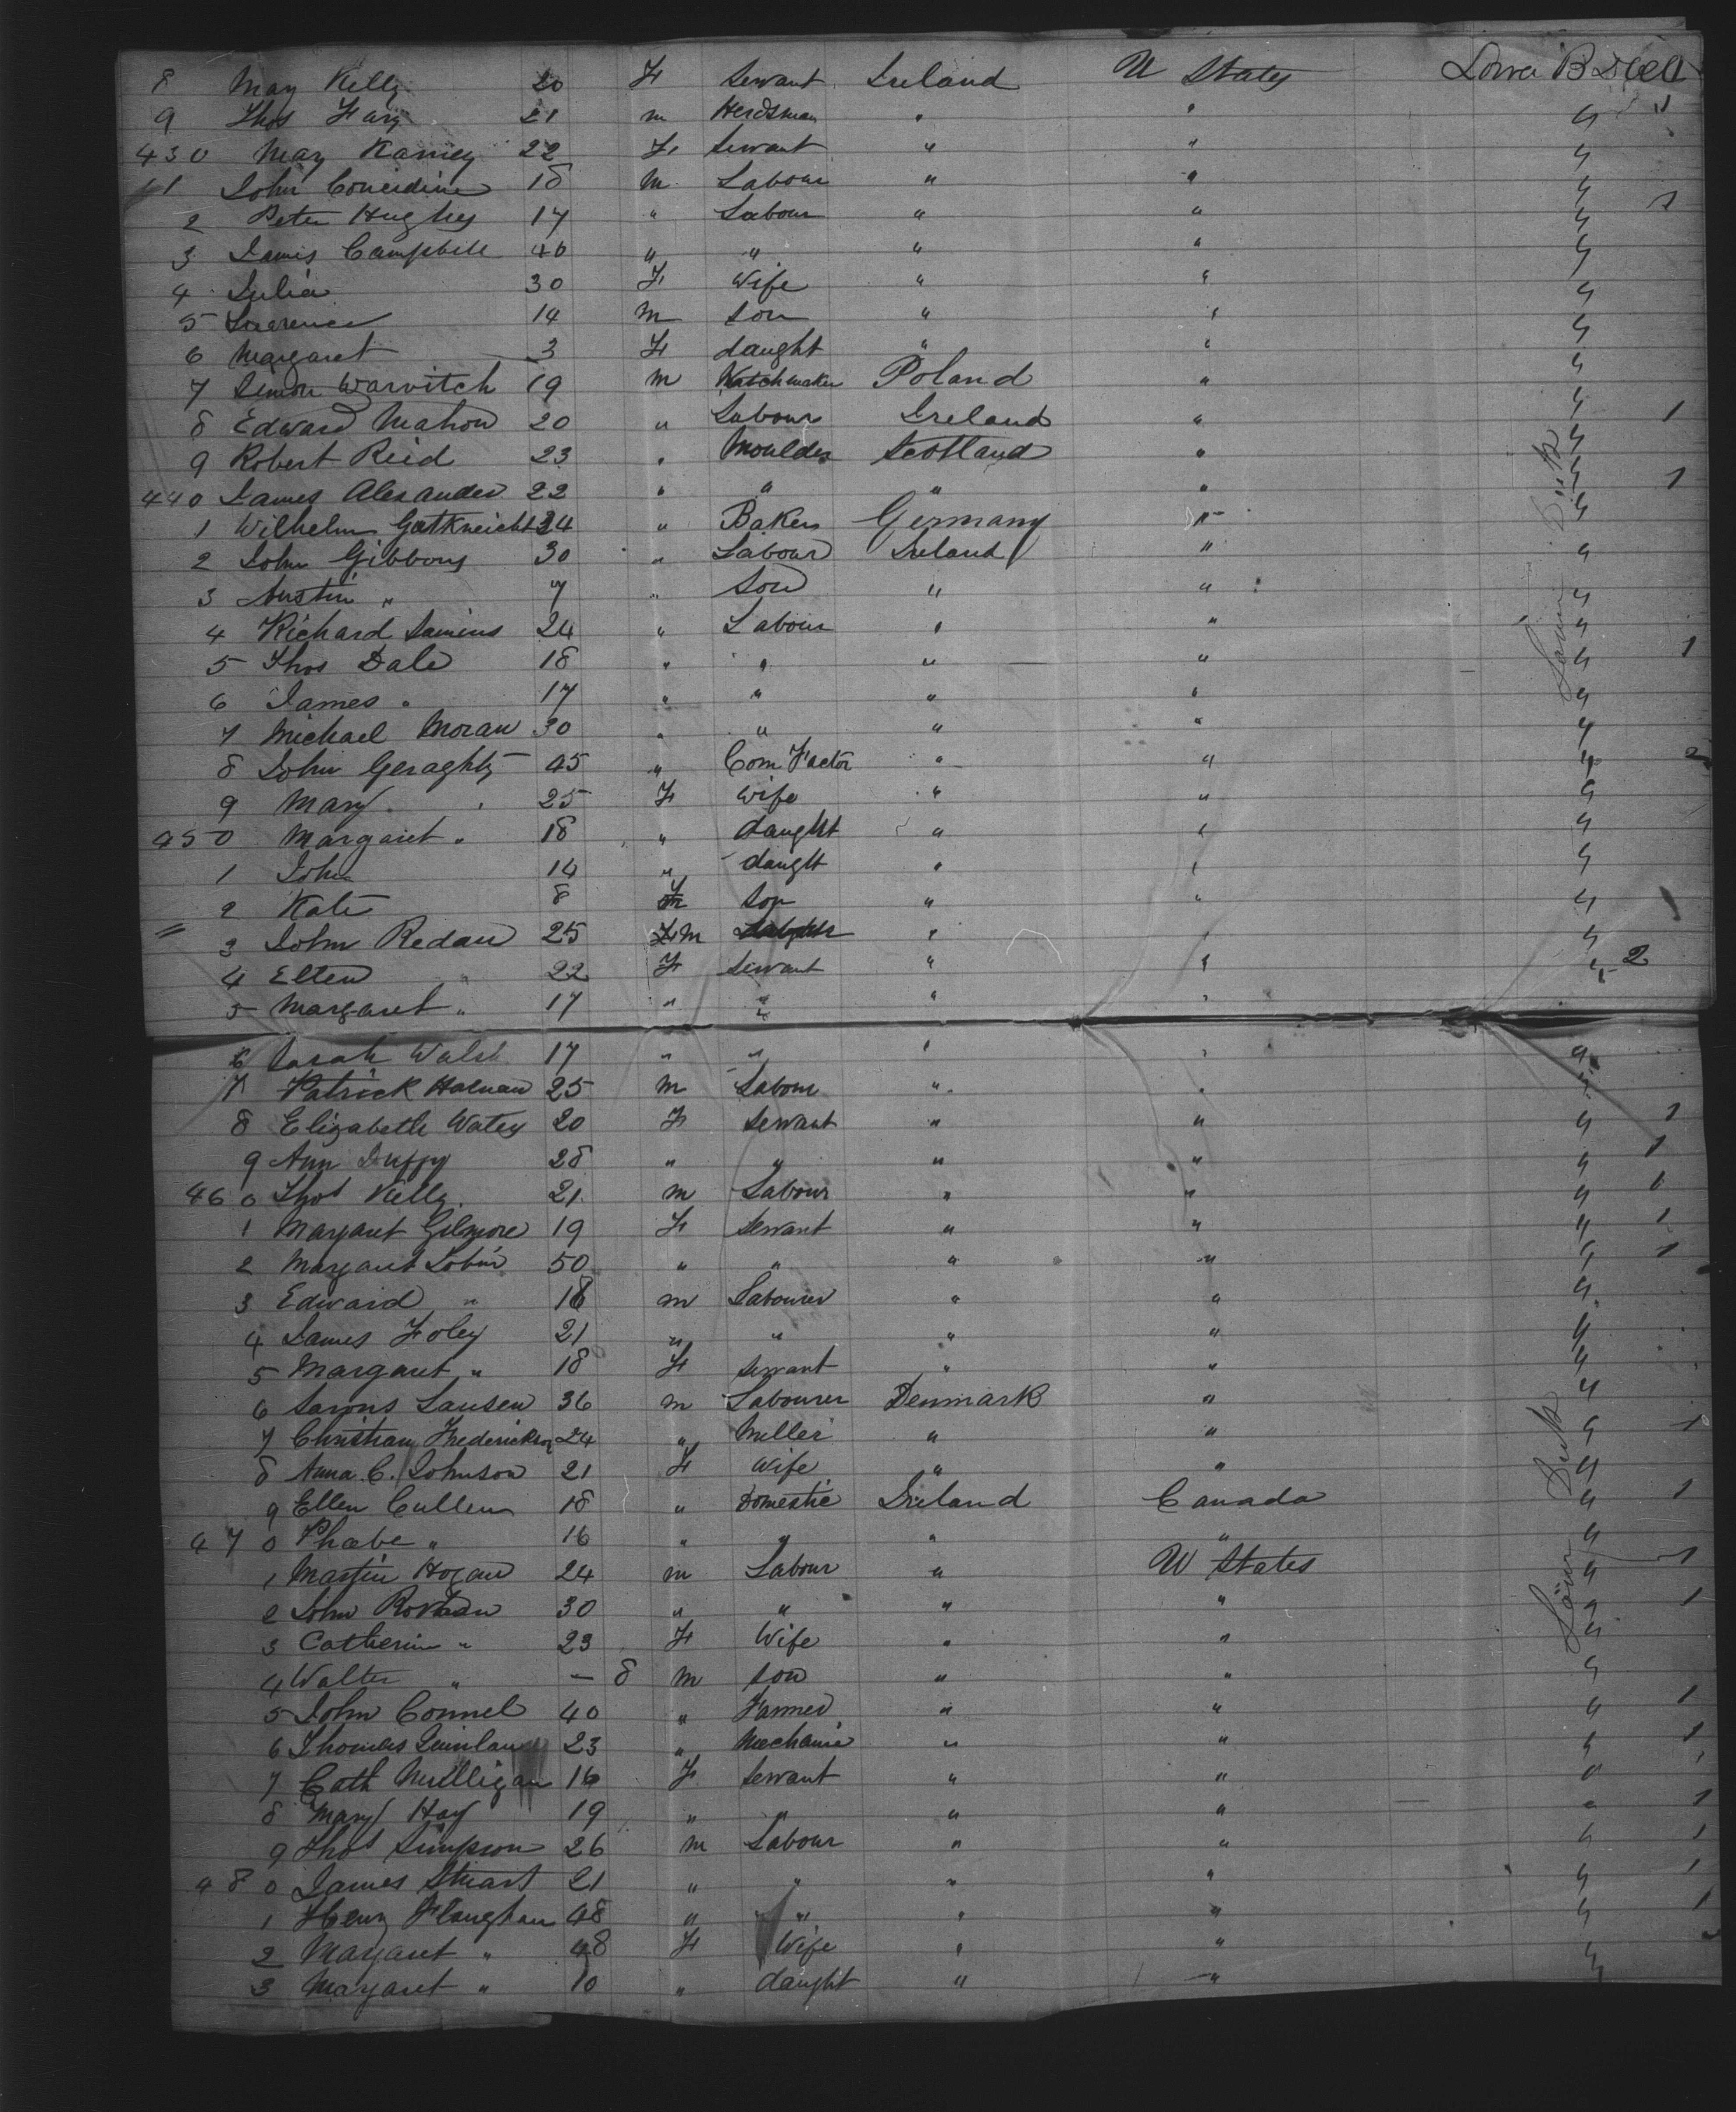 8 May Kelly 20 F Servant Ireland U States Lower B Deck 1
9 Thos 21 m Herdsman " " " 1
430 May 22 F Servant " " "
11 John Concidine 18 m Labour " " "
2 Peter Hughes 17 " Labour " " " 1
3 James Campbell 40 " " " " "
4 Julia 30 F Wife " " "
5 Lawrence 14 m Son " " "
6 Margaret 3 F daught " " "
7 Simon Warvitch 19 m Watchmaker Poland " "
8 Edward Mahon 20 " Labour Ireland " " 1
9 Robert Reid 23 " Moulder Scotland " "
440 James Alexander 22 " " " " " 1
1 Wilhelm Gutkneicht 34 " Baker Germany " "
2 John Gibbons 30 " Labour Ireland " "
3 Austin " 7 " Son " " "
4 Richard 24 " Labour " " "
5 Thos Dale 18 " " " " " 1
6 James " 17 " " " " "
7 Michael Moran 30 " " " " "
8 John Geraghty 45 " Corn Factor " " " 2
9 Mary " 25 F Wife " " "
450 Margaret " 18 " daught " " "
1 John 14 " daught " " "
2 Kate 8 F Son " " "
3 John Redan 25 F m " " "
4 Ellen " 22 F Servant " " " 2
5 Margaret " 17 " " " "
6 Sarah Walsh 17 " " " " "
7 Patrick 25 m Labour " " "
8 Elizabeth Waters 20 F Servant " " " 1
9 Ann Duffy 28 " " " " " 1
460 Thos Kelly 21 m Labour " " " 1
1 Margaret Gilmore 19 F Servant " " " 1
2 Margaret Tobin 50 " " " " " 1
3 Edward " 18 m Labourer " " "
4 James Foley 21 " " " " "
5 Margaret " 18 F Servant " " "
6 Lausen 36 m Labourer Denmark " "
7 Christian Frederickson 24 " Miller " " " 1
8 Anna C. Johnson 21 F Wife " " "
9 Ellen Cullen 18 " Domestic Ireland Canada " 1
470 Phœbe " 16 " " " " "
1 Martin Hogan 24 m Labour " U States " 1
2 John 30 " " " " " 1
3 Catherine " 23 F Wife " " "
4 Walter " — 8 m Son " " "
5 John Connel 40 " Farmer " " " 1
6 Thomas Quinlan 23 " Mechanic " " " 1
7 Cath Mulligan 16 F Servant " " " 1
8 Mary Hay 19 " " " " " 1
9 Thos Simpson 26 m Labour " " " 1
480 James Stuart 21 " " " " " 1
1 Henry Flanghan 48 " " " " " 1
2 Margaret " 48 F Wife " " "
3 Margaret " 10 " daught " " "